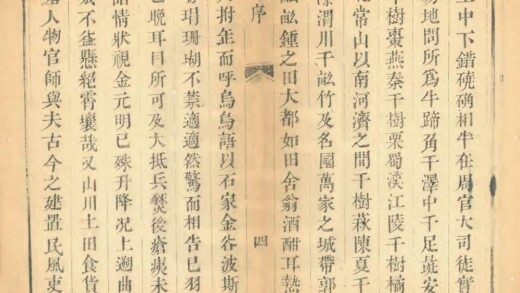 上中下錯磽确相半在周官大司徒實
易地問所爲牛蹄角千澤中千足彘安
千樹棗燕秦千樹栗蜀漢江陵千樹橘
常山以南河濟之間千樹萩陳夏千
渭川千畝竹及名國萬家之城帶郭
畝鍾之田大都如田舍翁酒酣耳熱
序 四
拊缶而呼烏烏語以石家金谷波斯
珊瑚不禁適適然驚而相告已羽
已晚耳目所可及大抵兵燹後瘡痍未
情狀視金元明已殊升降况上遡曲
不啻懸絕霄壤哉又山川土田食貨
人物官師與夫古今之建置民風吏